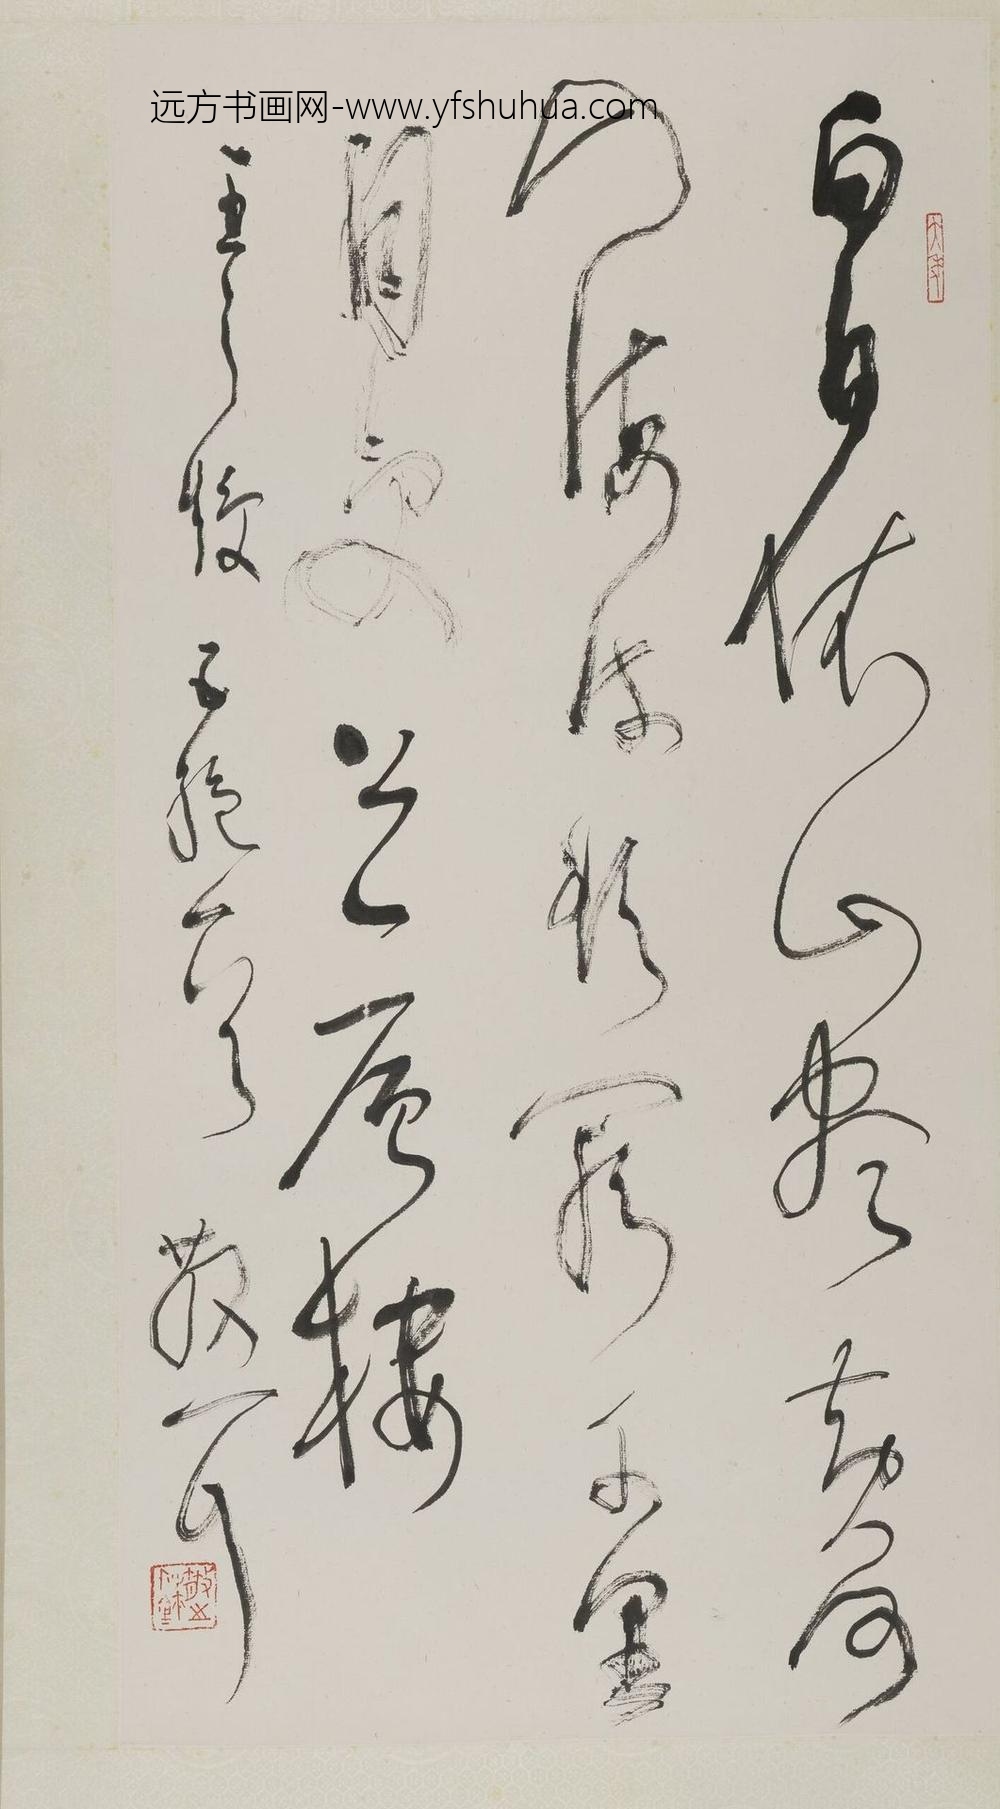 远方书画网-www.yfshuhua.com
白日依山尽黄河
入海流欲穷千里
目更上一层楼
王之涣 五绝一首 散之